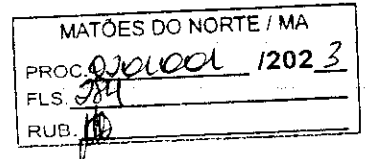 MATÕES DO NORTE / MA
PROC. /202 3
FLS. 284
RUB.